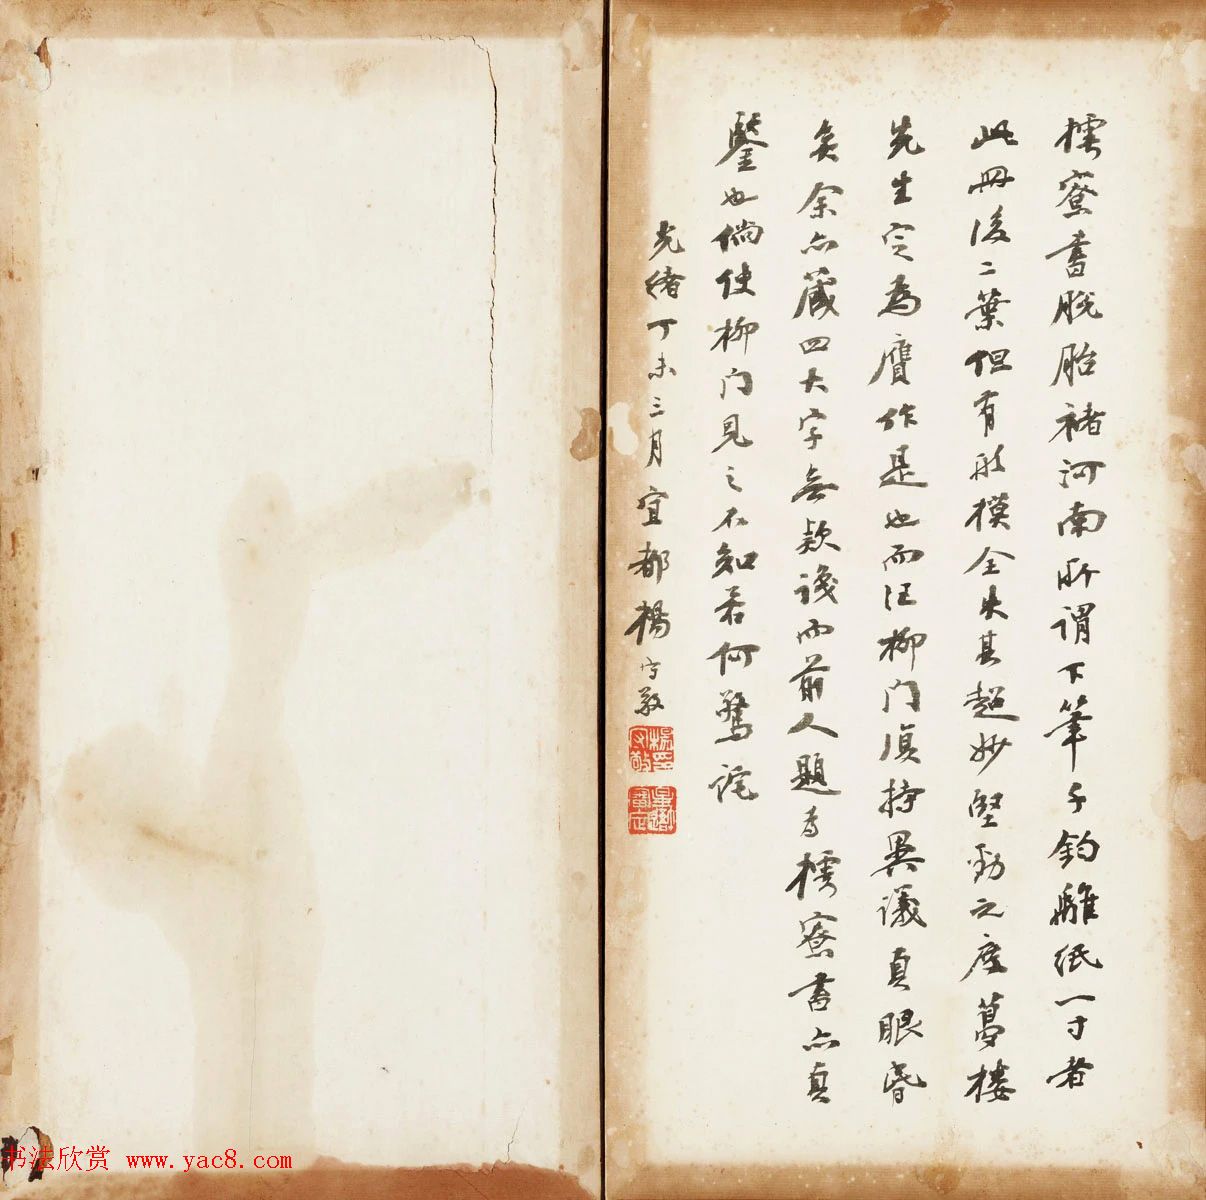 樗寮書脫胎褚河南所謂下筆千鈞離紙一寸者
此冊後二葉但有形模全失其超妙堅勁之度夢樓
先生定為贋作是也而汪柳門頂持異議真眼昏
矣余亦藏四大字無款識而前人題為樗寮書亦真
鑒也倘使柳門見之不知若何驚詫
光緒丁未三月宜都楊守敬
书法欣赏 www.yac8.com